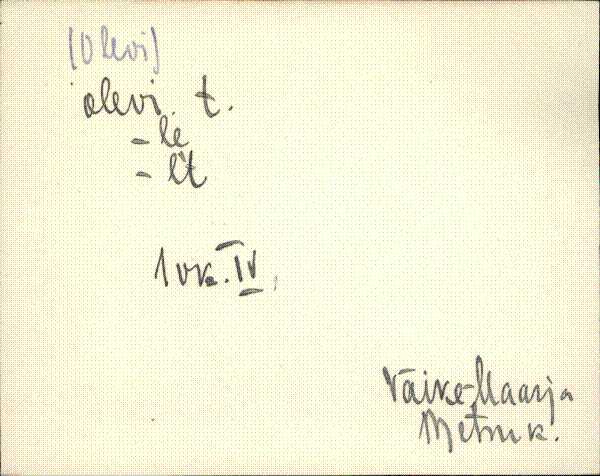 [Olevi]
olevi t.
- le
- lt
1 vk. IV
Väike-Maarja
Metsk.